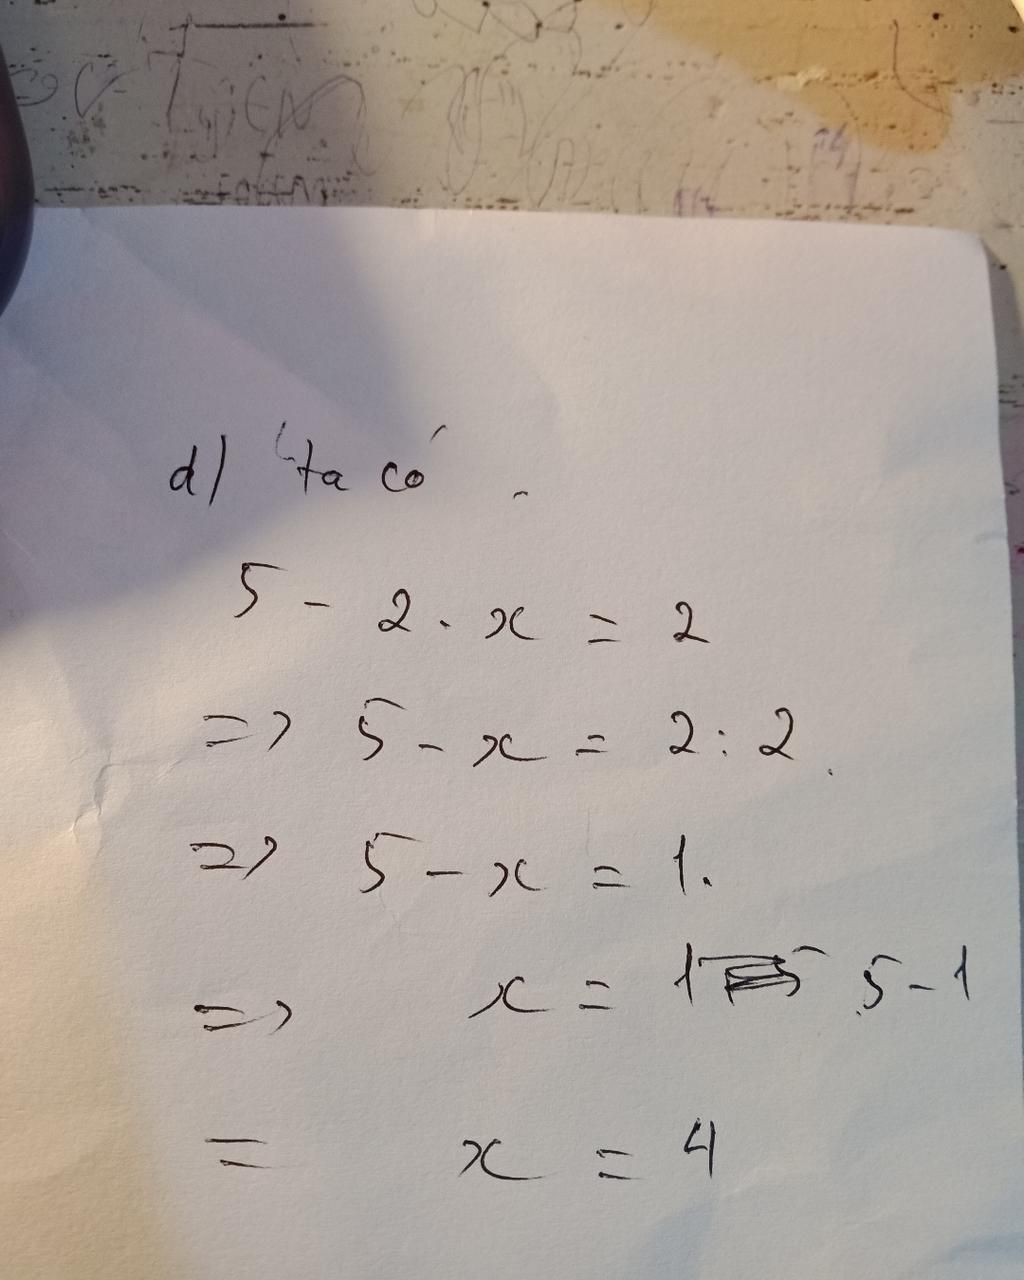 d) ta có
5 - 2 . x = 2
=> 5 - x = 2 : 2
=> 5 - x = 1.
=> x = 5 - 1
= x = 4